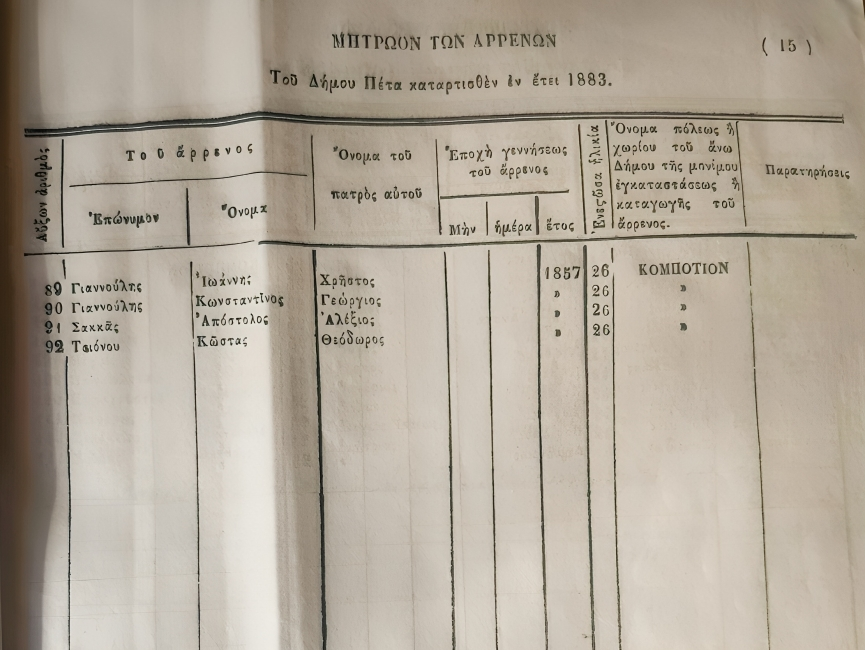 ΜΗΤΡΩΟΝ ΤΩΝ ΑΡΡΕΝΩΝ
( 15 )
Τοῦ Δήμου Πέτα καταρτισθὲν ἐν ἔτει 1883.
Αὔξων ἀριθμὸς
Τοῦ ἄρρενος
Ἐπώνυμον
Ὄνομα
Ὄνομα τοῦ
πατρὸς αὐτοῦ
Ἐποχὴ γεννήσεως
τοῦ ἄρρενος
Μὴν
ἡμέρα
ἔτος
Ἐνεστῶσα ἡλικία
Ὄνομα πόλεως ἢ
χωρίου τοῦ ἄνω
Δήμου τῆς μονίμου
ἐγκαταστάσεως ἢ
καταγωγῆς τοῦ
ἄρρενος.
Παρατηρήσεις
89 Γιαννούλης Ἰωάννης Χρῆστος 1857 26 ΚΟΜΠΟΤΙΟΝ
90 Γιαννούλης Κωνσταντῖνος Γεώργιος » 26 »
91 Σακκᾶς Ἀπόστολος Ἀλέξιος » 26 »
92 Τσιόνου Κῶστας Θεόδωρος » 26 »